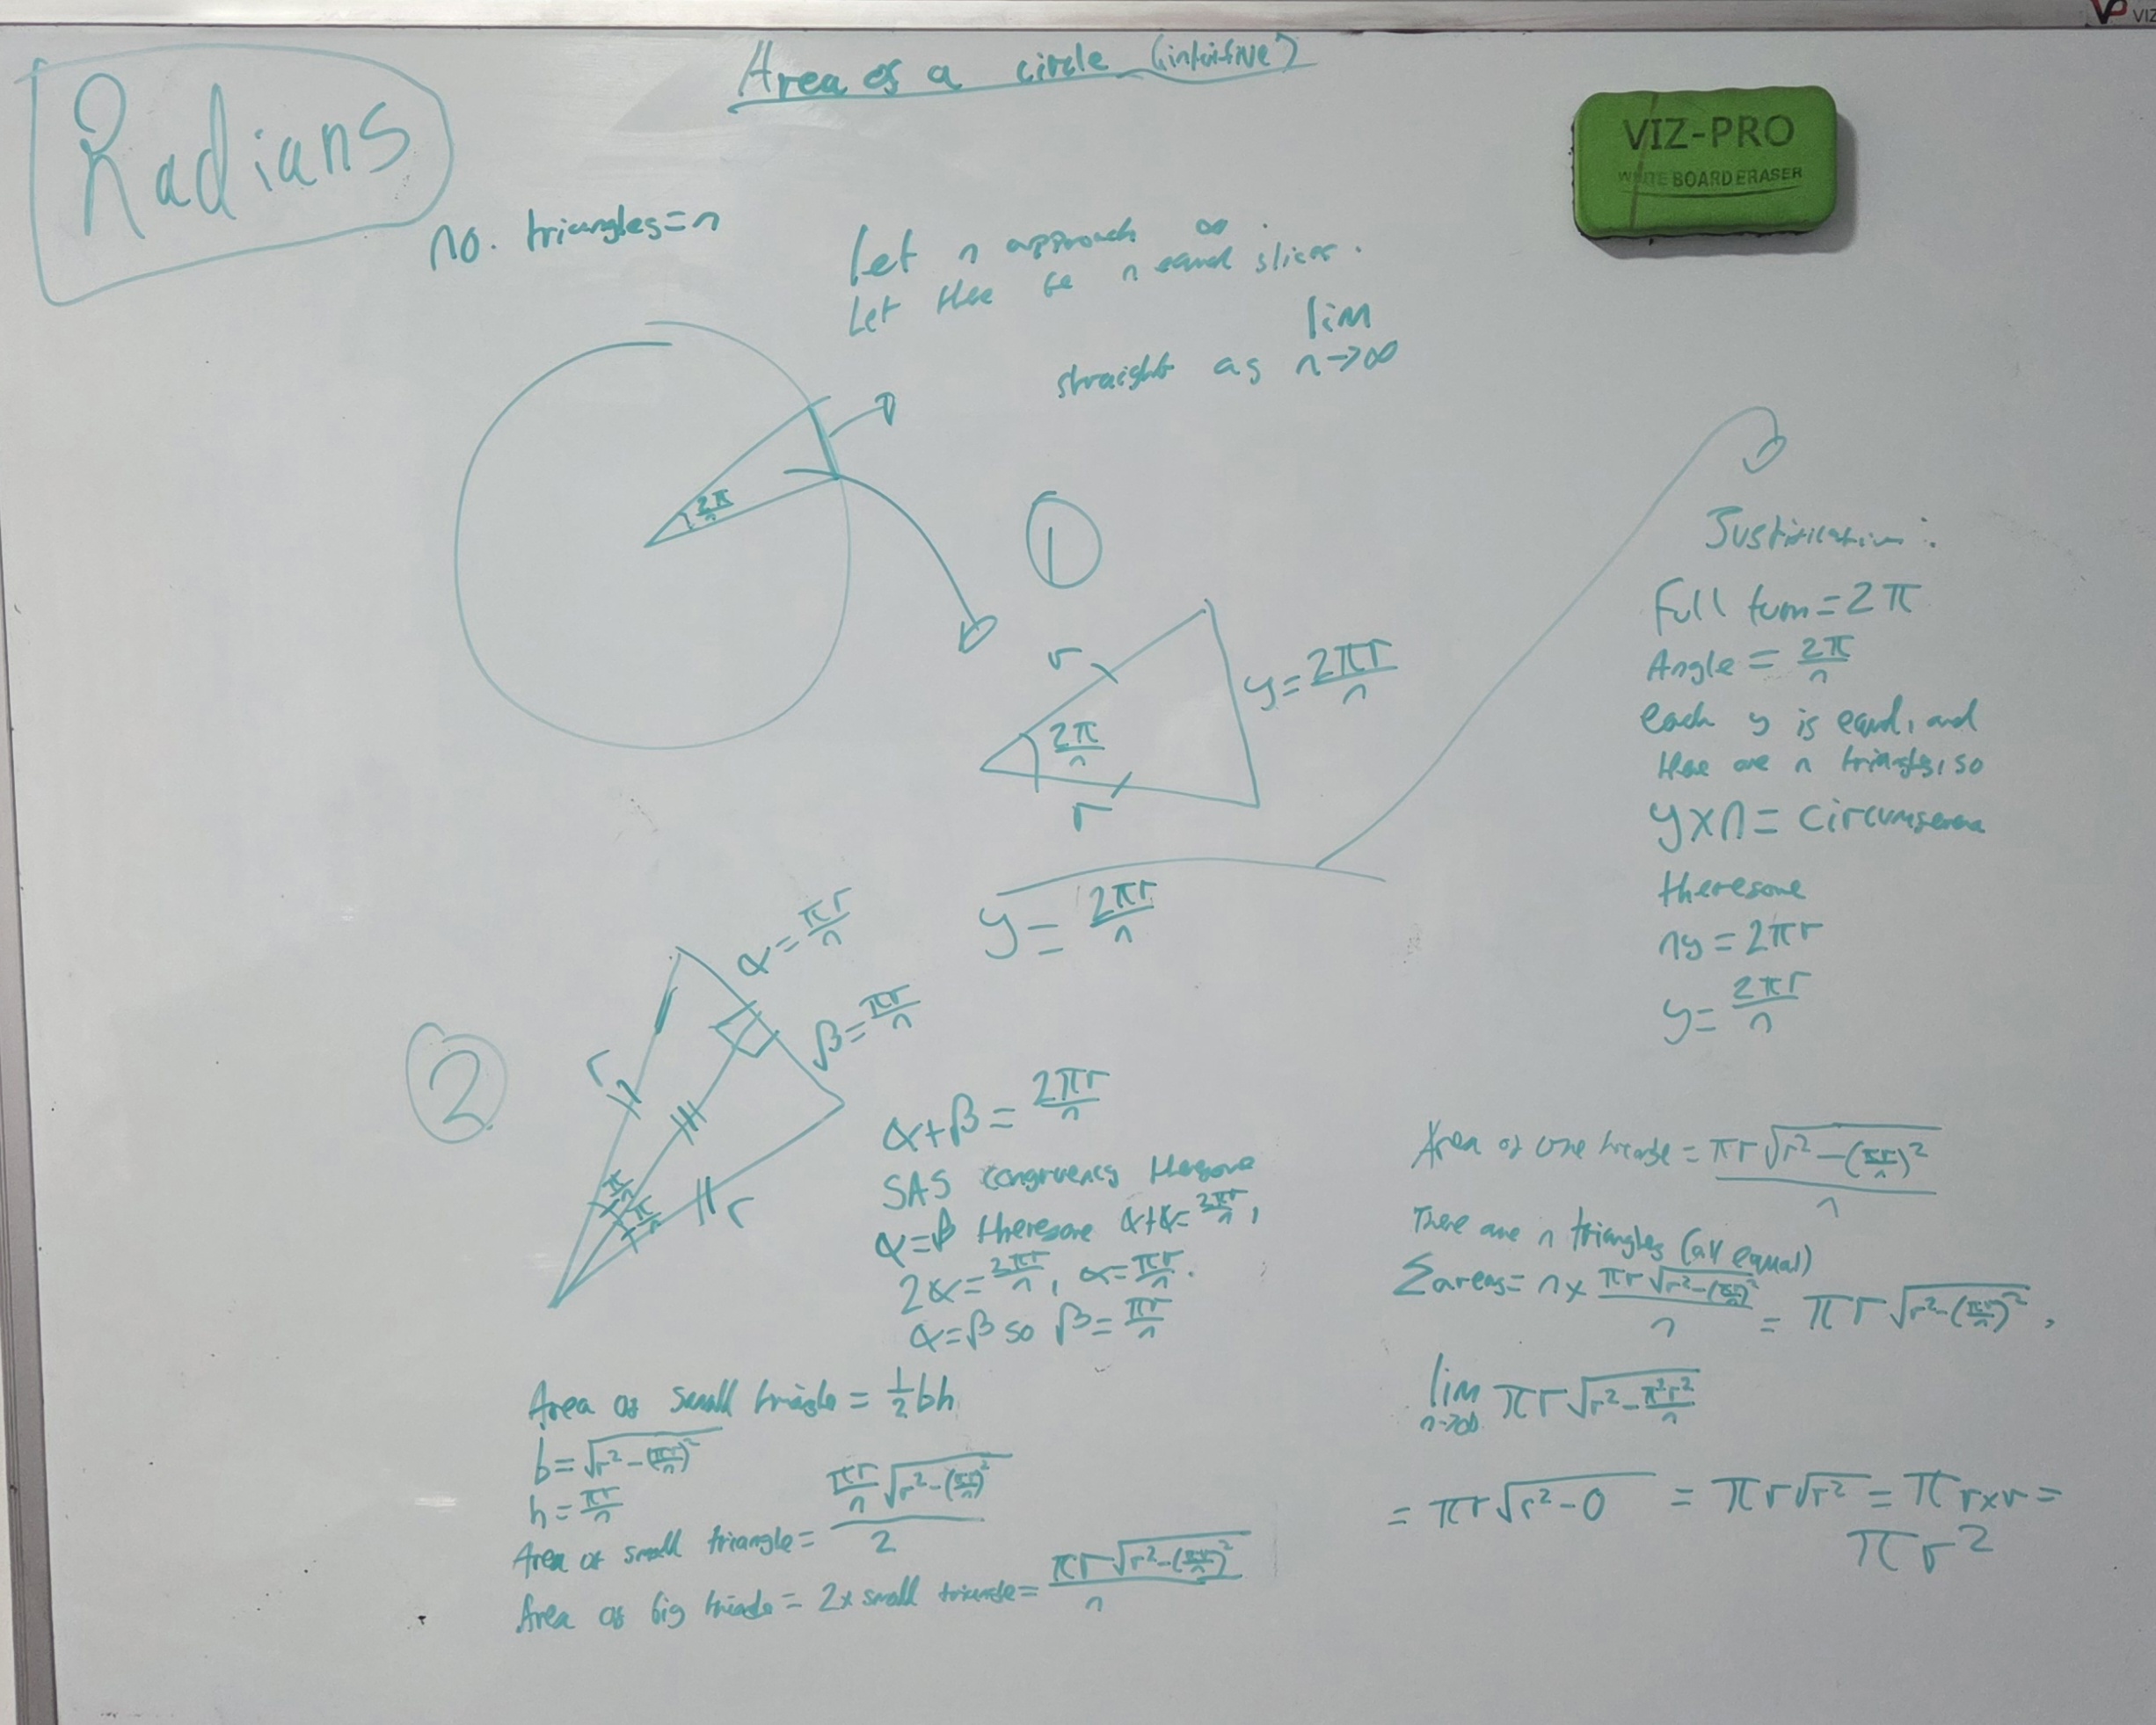 VIZ
Area of a circle (intuitive)
Radians
VIZ-PRO
WHITE BOARD ERASER
no. triangles=n
Let n approach ∞.
Let there be n equal slices.
straight as lim n→∞
2π/n
①
r
y=2πr/n
2π/n
r
y=2πr/n
Justification:
Full turn=2π
Angle=2π/n
each y is equal, and
there are n triangles, so
y×n=circumference
therefore
ny=2πr
y=2πr/n
②
α=πr/n
β=πr/n
r
r
π/n
π/n
α+β=2πr/n
SAS congruency therefore
α=β therefore α+α=2πr/n,
2α=2πr/n, α=πr/n.
α=β so β=πr/n
Area of small triangle=½bh
b=√(r²-(πr/n)²)
h=πr/n
Area of small triangle=(πr/n √(r²-(πr/n)²))/2
Area of big triangle=2×small triangle=(πr√(r²-(πr/n)²))/n
Area of one triangle=(πr√(r²-(πr/n)²))/n
There are n triangles (all equal)
Σareas=n×(πr√(r²-(πr/n)²))/n=πr√(r²-(πr/n)²),
lim n→∞ πr√(r²-π²r²/n)
=πr√(r²-0)=πr√r²=πr×r=
πr²